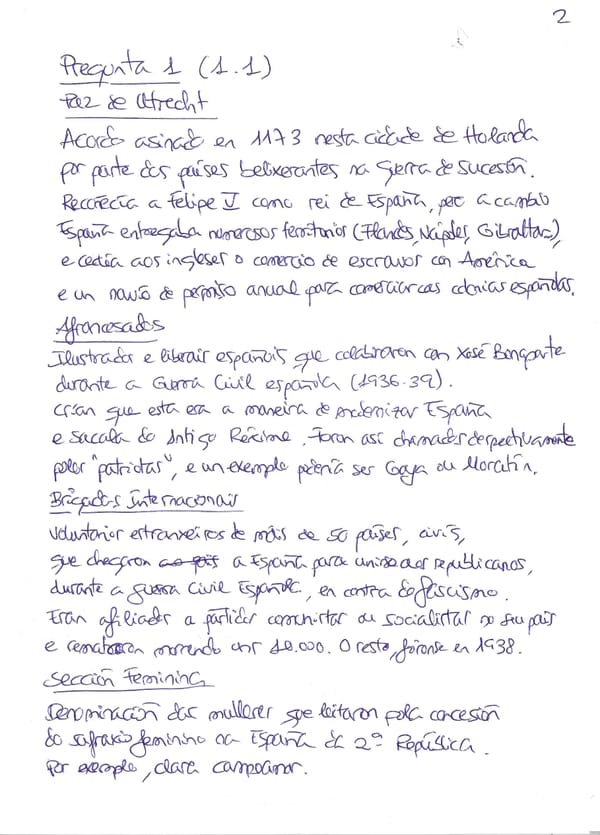 2
Pregunta 1 (1.1)
Paz de Utrecht
Acordo asinado en 1173 nesta cidade de Holanda
por parte dos países belixerantes na Guerra de Sucesión.
Recoñecía a Felipe V como rei de España, pero a cambio
España entregaba numerosos territorios (Flandes, Nápoles, Gibraltar),
e cedía aos ingleses o comercio de escravos con América
e un navío de permiso anual para comerciar coas colonias españolas.
Afrancesados
Ilustrados e liberais españois que colaboraron con Xosé Bonaparte
durante a Guerra Civil española (1936-39).
Crían que esta era a maneira de modernizar España
e sacala do Antigo Réxime. Foron así chamados despectivamente
polos "patriotas", e un exemplo podería ser Goya ou Moratín.
Brigadas Internacionais
Voluntarios estranxeiros de máis de 50 países, civís,
que chegaron ao país a España para unirse aos republicanos,
durante a Guerra Civil Española, en contra do fascismo.
Eran afiliados a partidos comunistas ou socialistas no seu país
e remataron morrendo uns 10.000. O resto, foronse en 1938.
Sección Feminina
Denominación das mulleres que loitaron pola concesión
do sufraxio feminino na España da 2ª República.
Por exemplo, Clara Campoamor.